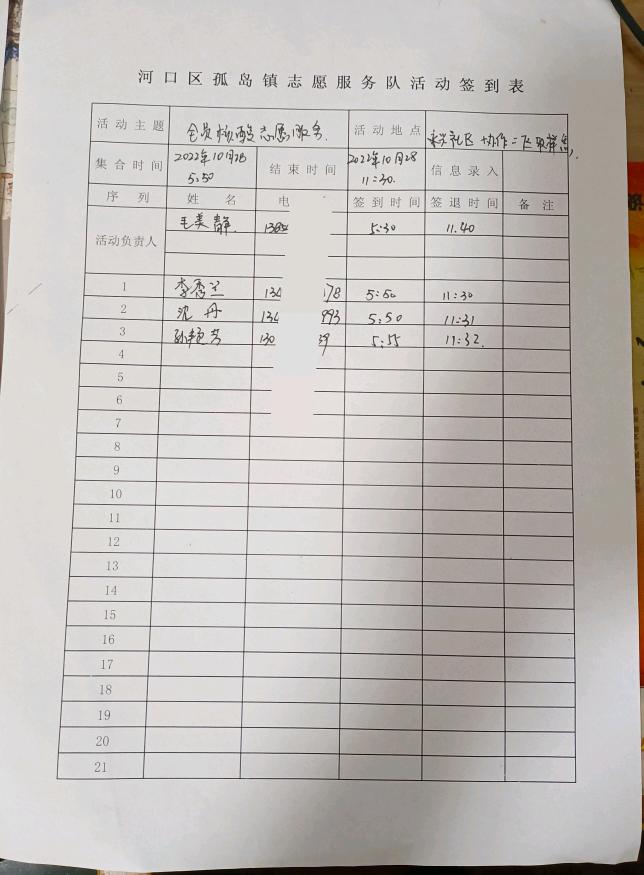 河口区孤岛镇志愿服务队活动签到表
活动主题 全员核酸志愿服务. 活动地点 社区 协作二区取样点,
集合时间 2022年10月28 5:50 结束时间 2022年10月28 11:30. 信息录入
序列 姓名 电 签到时间 签退时间 备注
活动负责人 王美静. 5:30 11.40
1 李秀兰 134 178 5:50 11:30
2 沈丹 134 993 5:50 11:31
3 孙艳芳 130 39 5:55 11:32.
4
5
6
7
8
9
10
11
12
13
14
15
16
17
18
19
20
21